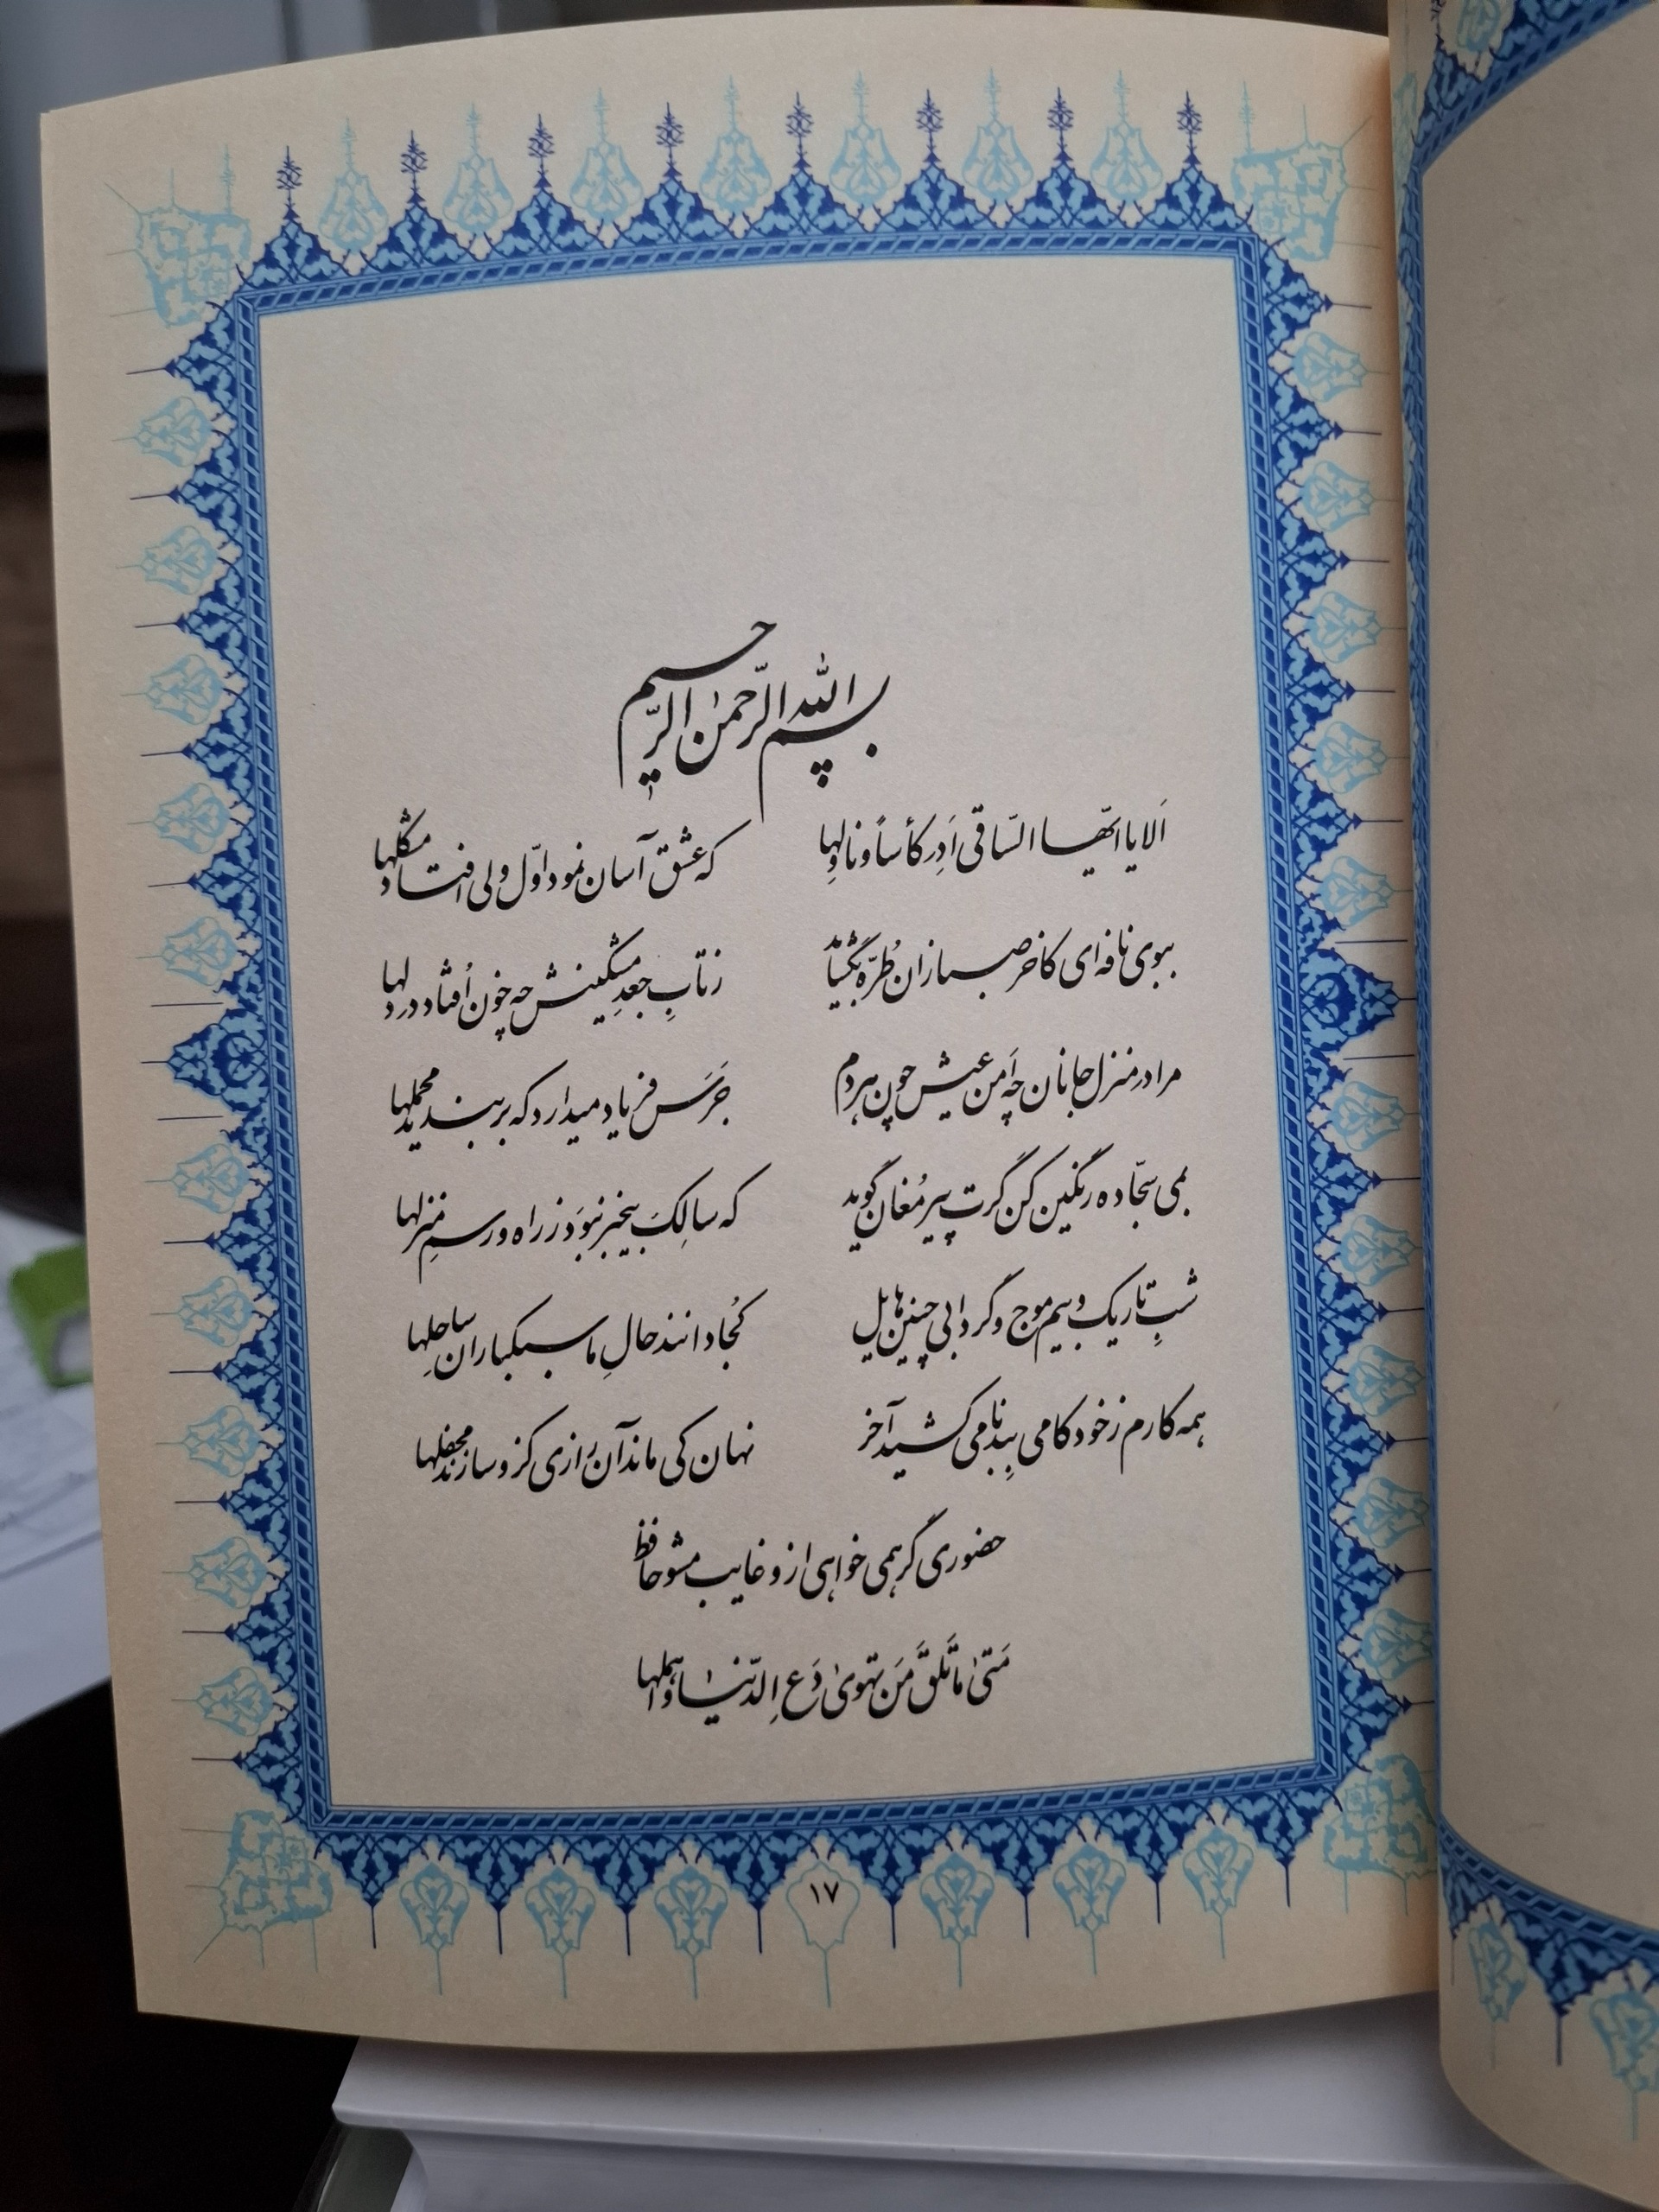 بسم الله الرّحمن الرّحیم
اَلا یا ایّها السّاقی اَدِر کأساً و ناوِلها که عشق آسان نمود اوّل ولی افتاد مشکلها
ببوی نافه‌ای کاخر صبا زان طُرّه بگشاید ز تابِ جعدِ مشکینش چه خون اُفتاد در دلها
مرا در منزل جانان چه اَمن عیش چون هر دم جَرَس فریاد میدارد که بربندید محملها
بمی سجّاده رنگین کن گرت پیر مُغان گوید که سالِک بیخبر نبوَد ز راه و رسمِ منزلها
شبِ تاریک و بیم موج و گردابی چنین هایل کُجا دانند حالِ ما سبکباران ساحِلها
همه کارم ز خود کامی بِبدنامی کشید آخر نهان کی ماند آن رازی کزو سازند محفلها
حضوری گر همی خواهی ازو غایب مشو حافظ
مَتیٰ ما تَلقَ مَن تهویٰ دَعِ الدّنیا و اهملها
۱۷